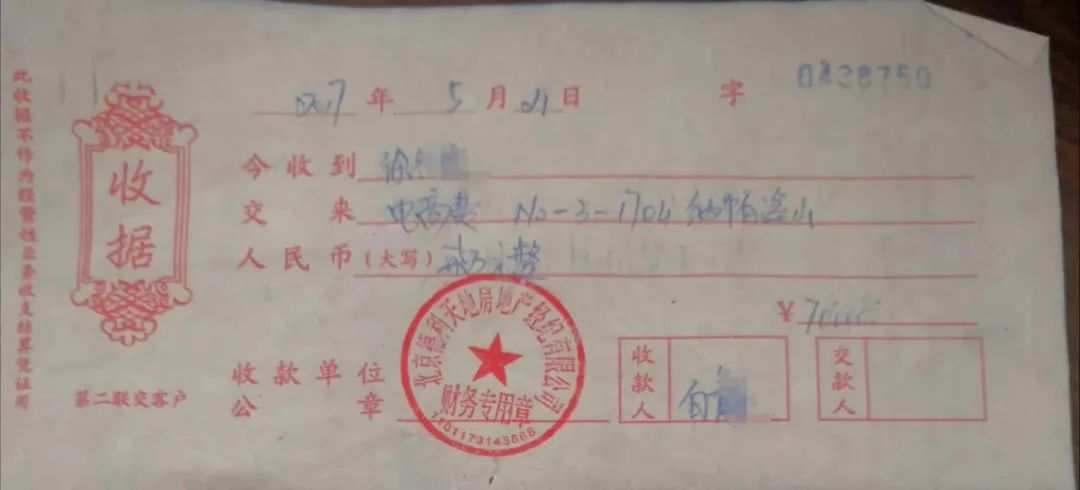 此收据不作为经营性业务收支结算凭证用
收据
第二联交客户
2017年 5月21日 字 0428750
今收到 徐
交来 电商费 No-3-1704 纳帕溪山
人民币(大写) 柒万元整
¥ 70000
收款单位
公章
北京德利天地房地产经纪有限公司
财务专用章
1101170143668
收款人
交款人